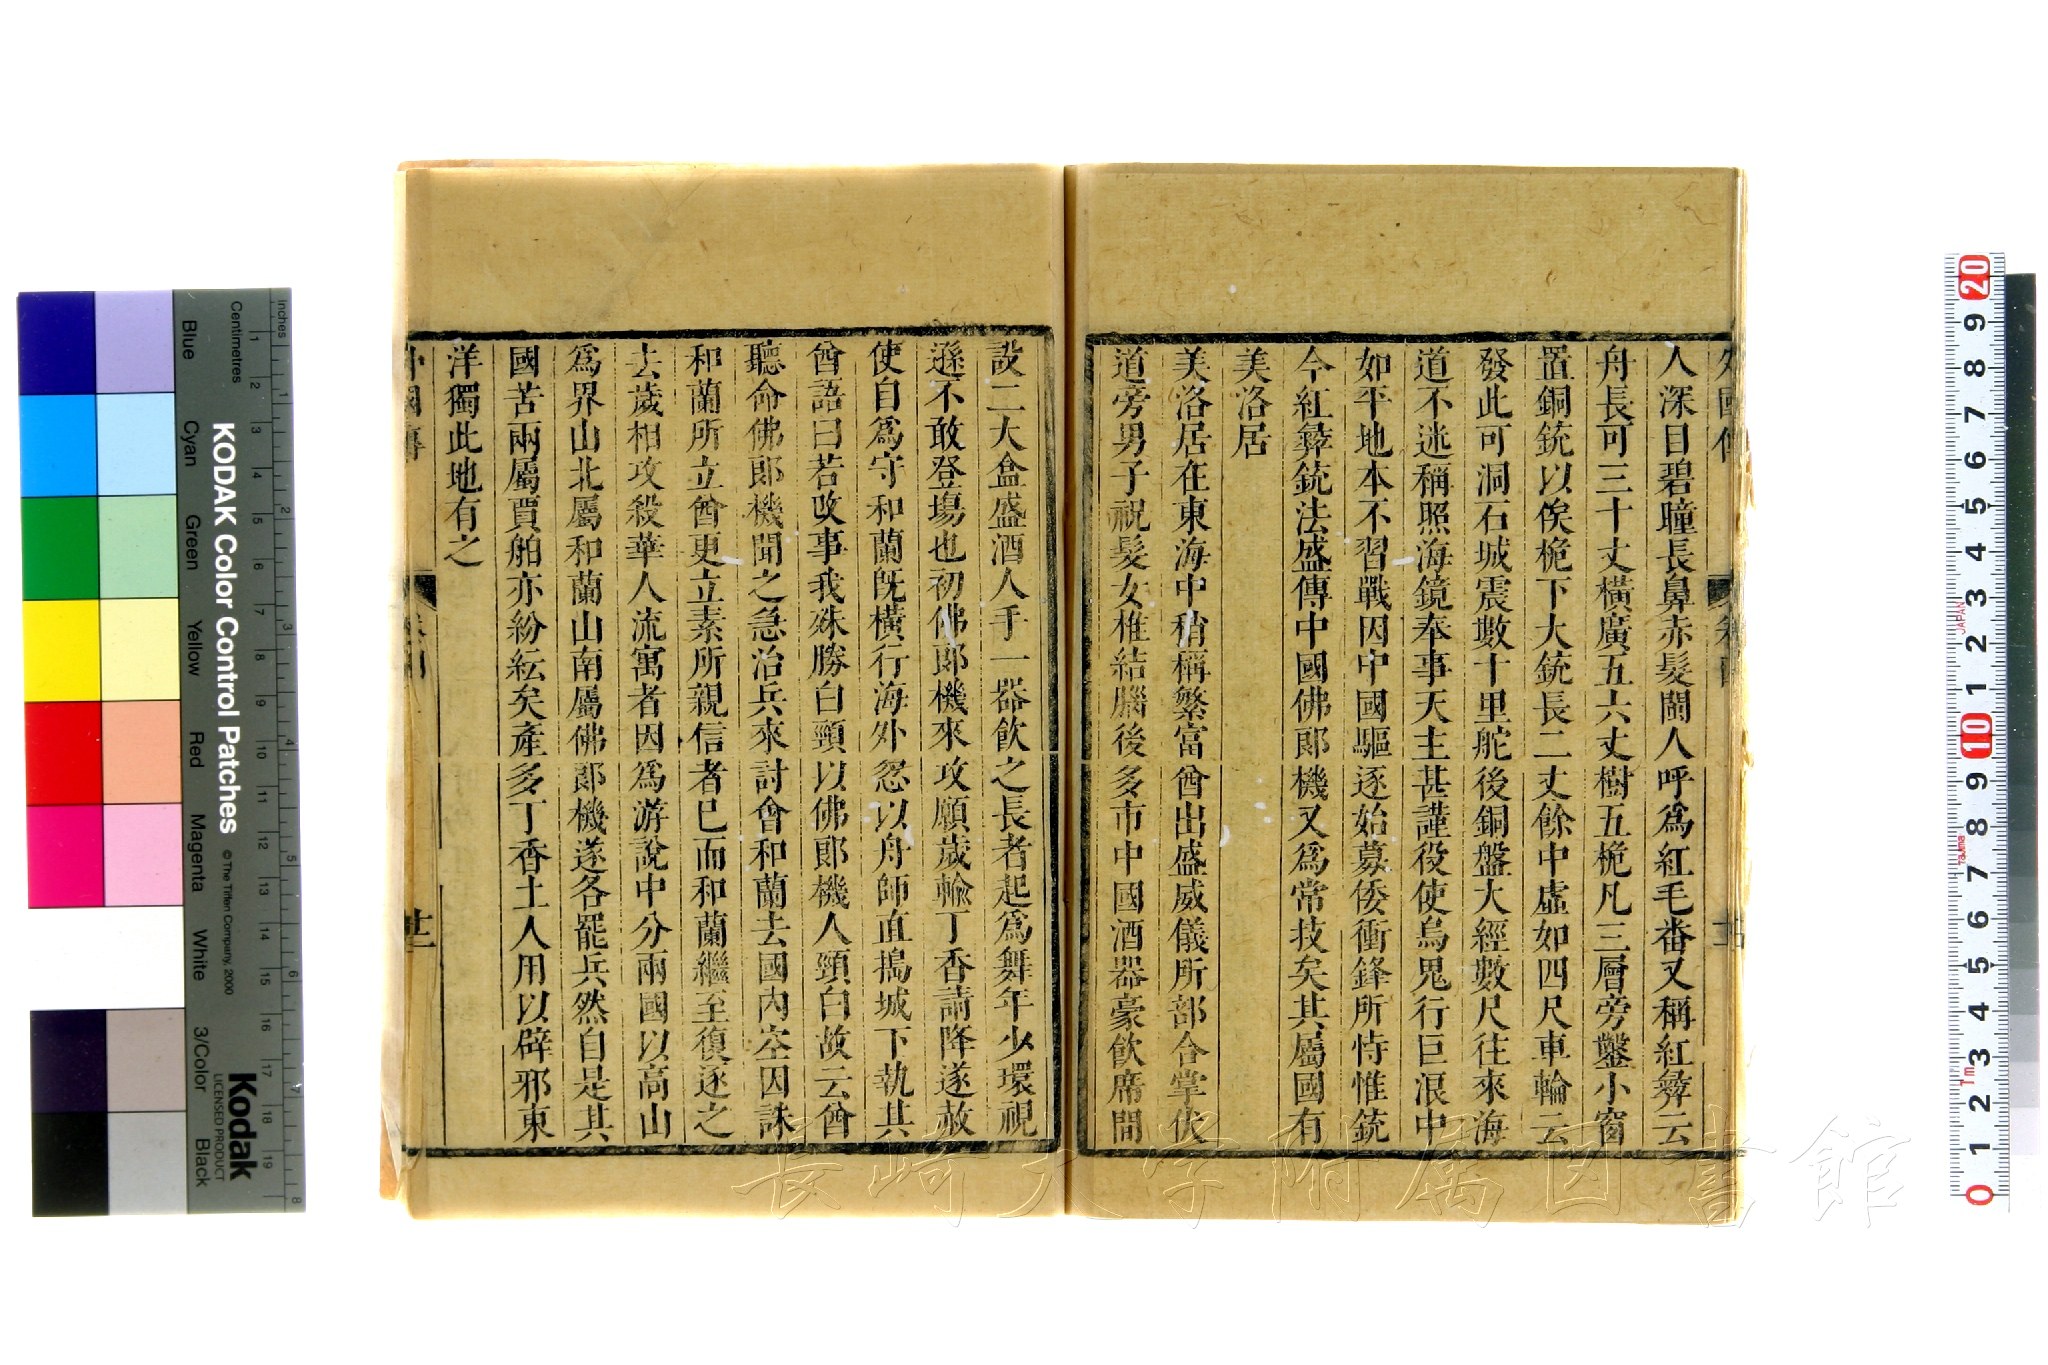 外國傳
人深目碧瞳長鼻赤髮閩人呼爲紅毛番又稱紅彝云
舟長可三十丈橫廣五六丈樹五桅凡三層旁鑿小窗
置銅銃以俟桅下大銃長二丈餘中虛如四尺車輪云
發此可洞石城震數十里舵後銅盤大經數尺往來海
道不迷稱照海鏡奉事天主甚謹役使烏鬼行巨浪中
如平地本不習戰因中國驅逐始募倭衝鋒所恃惟銃
今紅彝銃法盛傳中國佛郎機又爲常技矣其屬國有
美洛居
美洛居在東海中稍稱繁富酋出盛威儀所部合掌伏
道旁男子祝髮女椎結腦後多市中國酒器豪飲席間
設二大盒盛酒人手一器飲之長者起爲舞年少環視
遜不敢登場也初佛郎機來攻願歲輸丁香請降遂赦
使自爲守和蘭旣橫行海外忿以舟師直搗城下執其
酋語曰若改事我殊勝白頸以佛郎機人頸白故云酋
聽命佛郎機聞之急治兵來討會和蘭去國內空因誅
和蘭所立酋更立素所親信者已而和蘭繼至復逐之
去歲相攻殺華人流寓者因爲游說中分兩國以高山
爲界山北屬和蘭山南屬佛郎機遂各罷兵然自是其
國苦兩屬賈舶亦紛紜矣產多丁香土人用以辟邪東
洋獨此地有之
外國傳
廿二
長崎大学附属図書館
KODAK Color Control Patches
© The Tiffen Company, 2000
Kodak
LICENSED PRODUCT
Inches
Centimetres
Blue
Cyan
Green
Yellow
Red
Magenta
White
3/Color
Black
1 2 3 4 5 6 7 8 9 10 11 12 13 14 15 16 17 18 19
1 2 3 4 5 6 7 8
20 9 8 7 6 5 4 3 2 1 10 9 8 7 6 5 4 3 2 1 0
JAPAN
Tajima